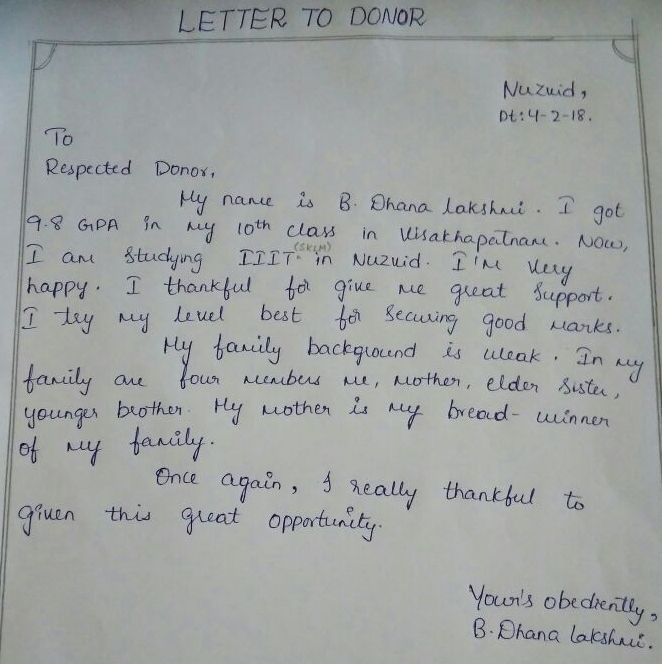 LETTER TO DONOR
Nuzvid,
Dt:4-2-18.
To
Respected Donor,
My name is B. Dhana lakshmi. I got
9.8 GPA in my 10th class in Visakhapatnam. Now,
I am studying IIIT (SKLM) in Nuzvid. I'm very
happy. I thankful for give me great support.
I try my level best for securing good marks.
My family background is weak. In my
family are four members me, mother, elder sister,
younger brother. My mother is my bread-winner
of my family.
Once again, I really thankful to
given this great opportunity.
Your's obediently,
B. Dhana lakshmi.